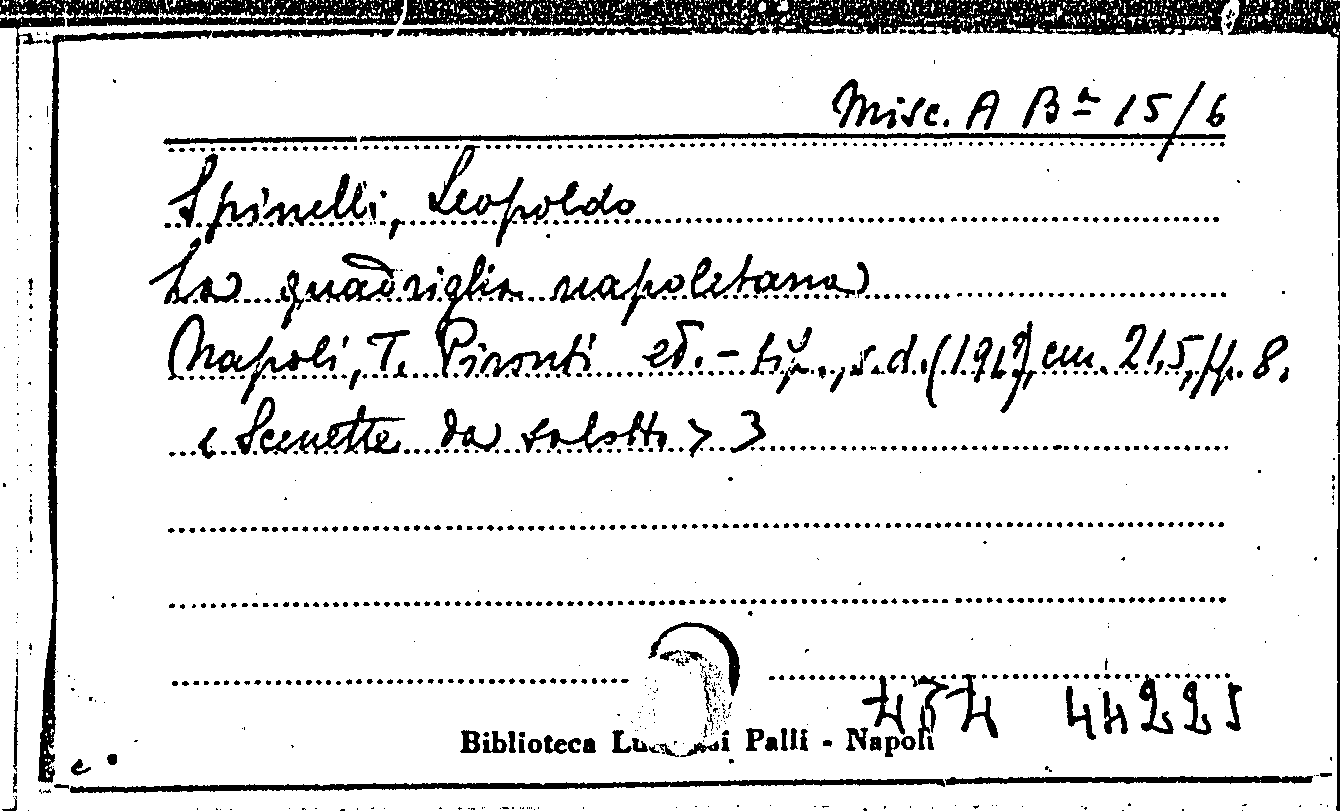 Misc. A Bª 15/6
Spinelli, Leopoldo
La quadriglia napoletana
Napoli, T. Pironti ed.-tip., s.d. cm. 21,5, pp. 8.
< Scenette da salotto > 3
44225
Biblioteca Palli - Napoli